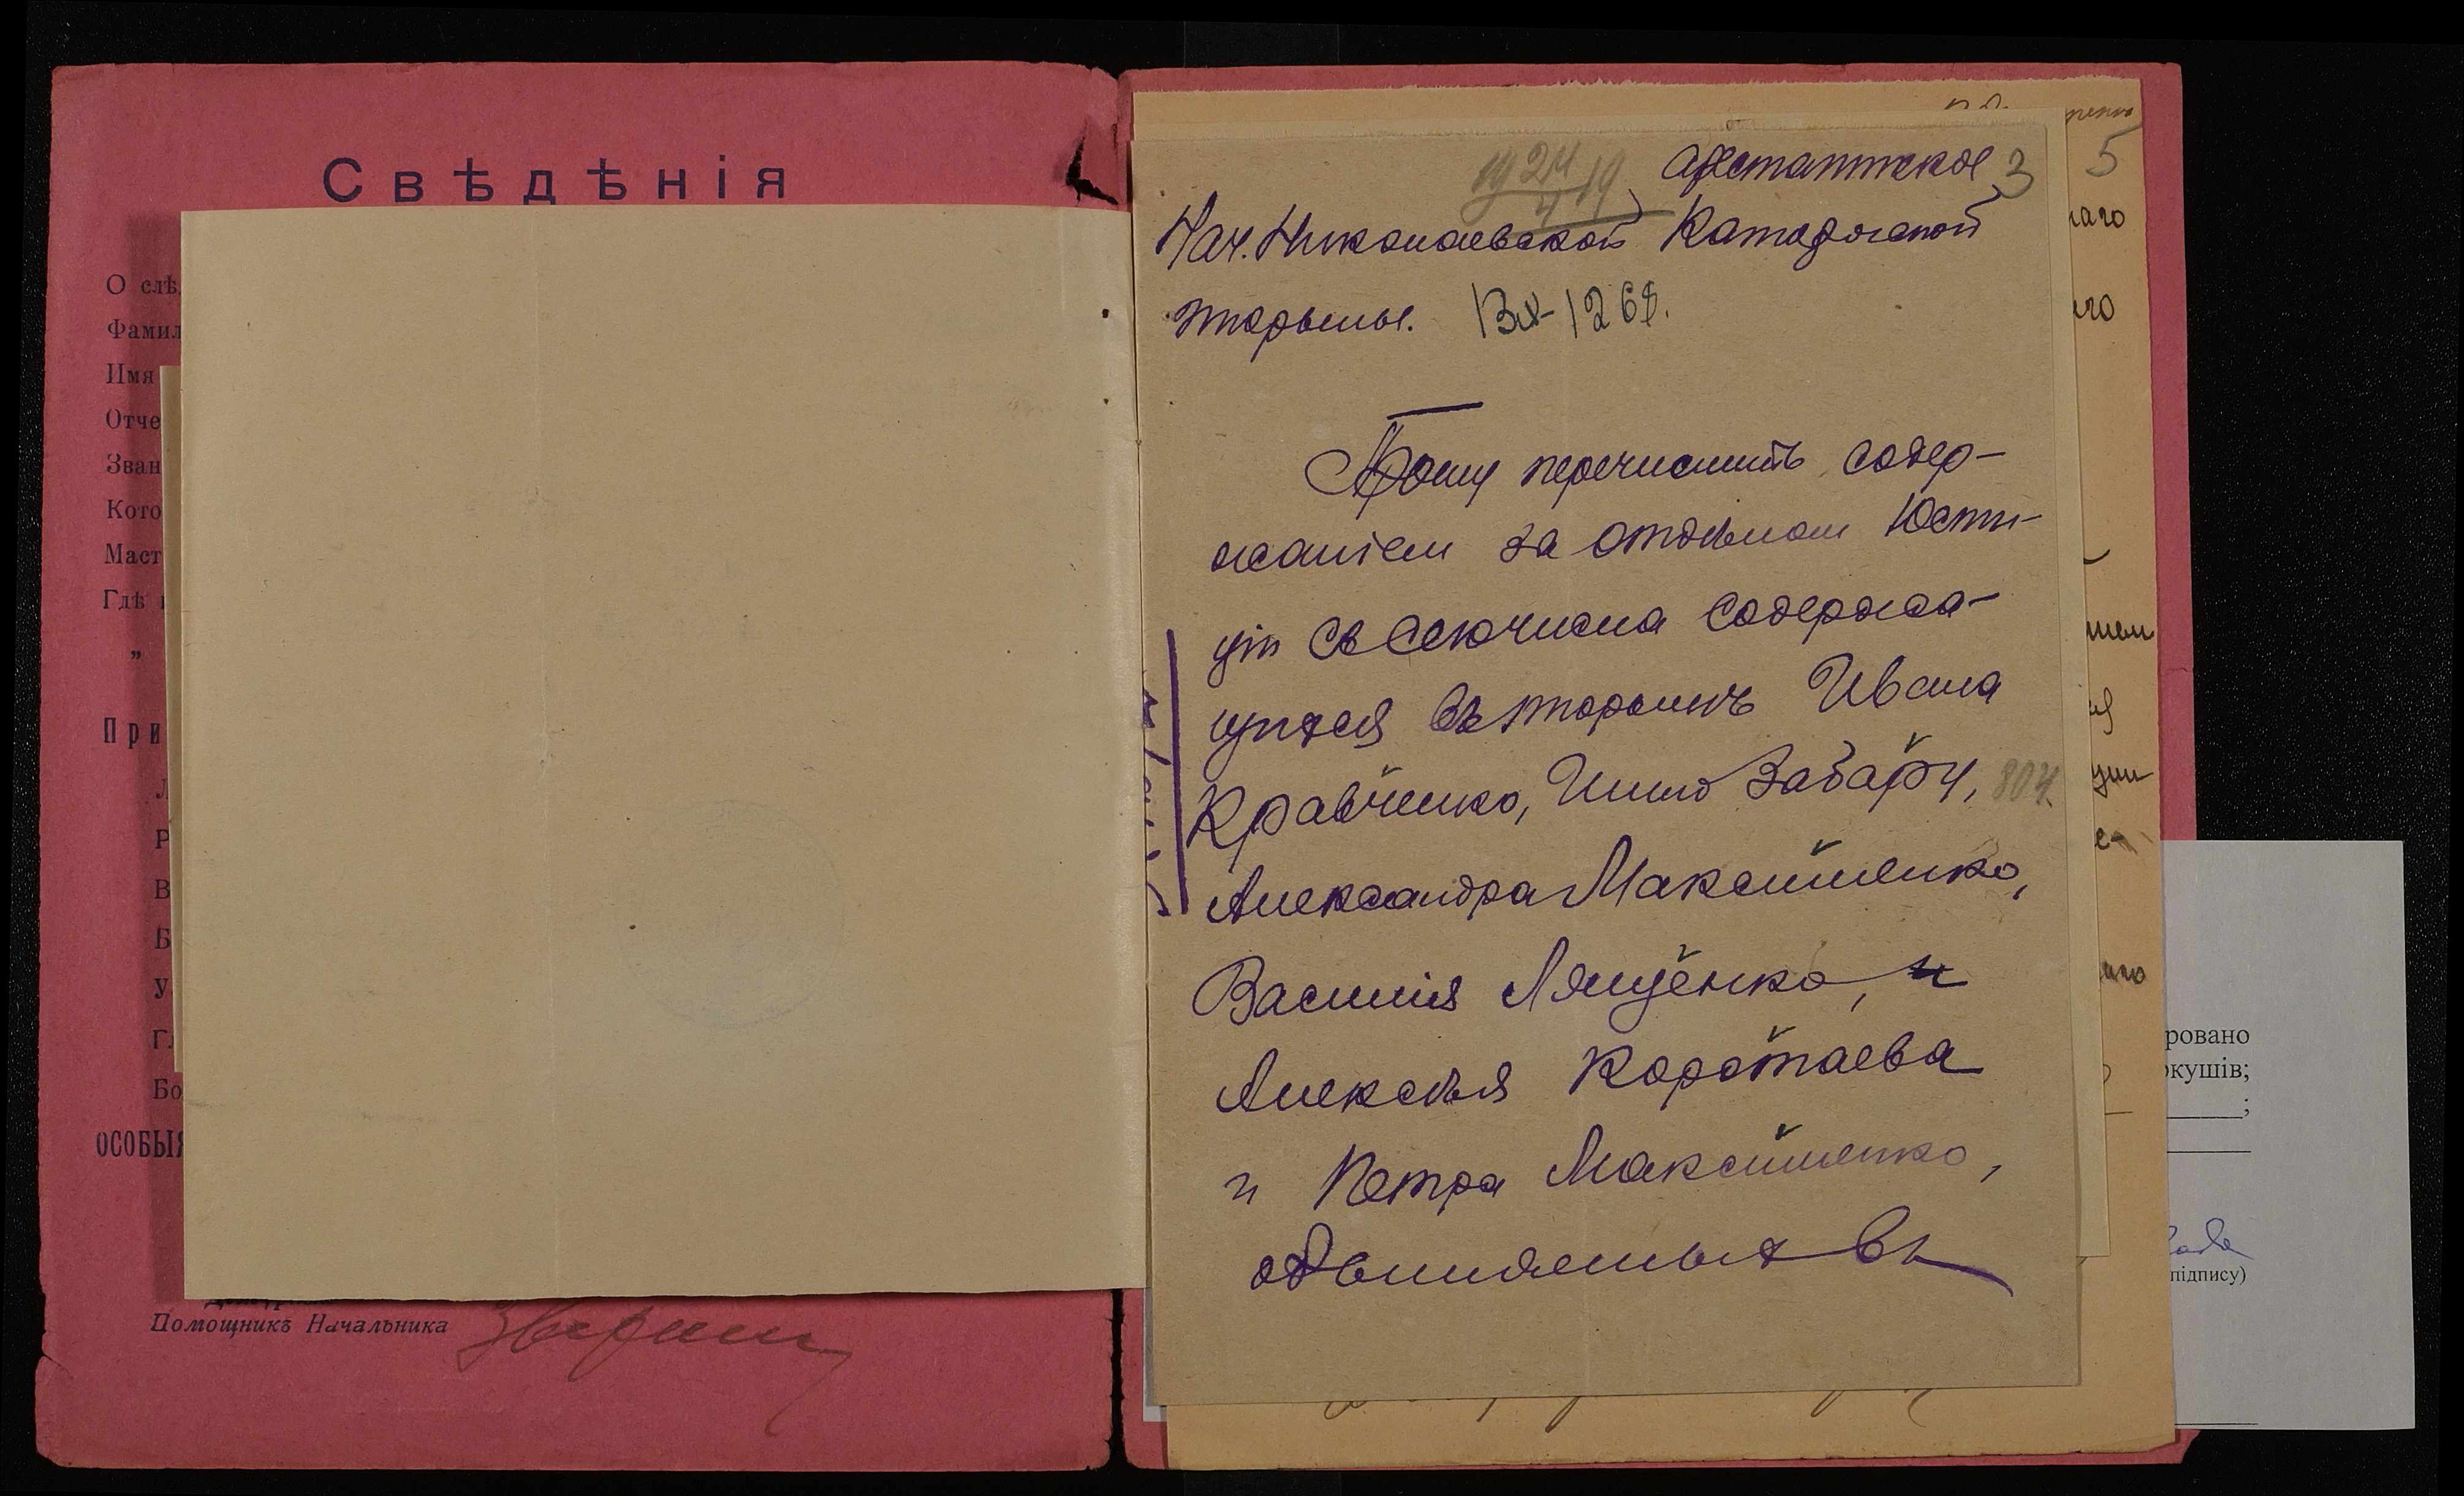 Свѣдѣнія
О слѣ
Фамил
Имя
Отче
Зван
Кото
Маст
Гдѣ
"
При
Л
Р
В
Б
У
Г
Бо
ОСОБЫЯ
Помощникъ Начальника
Арестантское 3
19 24/4 19
Нач. Николаевской Каторжной
тюрьмы. Вх-1268.
Прошу перечислить содер-
жаніем за отдѣлом Юсти-
ціи съ сего числа содержа-
щихся въ тюрьмѣ Ивана
Кравченко, Илью Забару, 804.
Александра Максименко,
Василія Лященко, и
Алексѣя Коротаева
и Петра Максименко,
обвиняемых въ
5
наго
ровано
ркушів;
;
підпису)